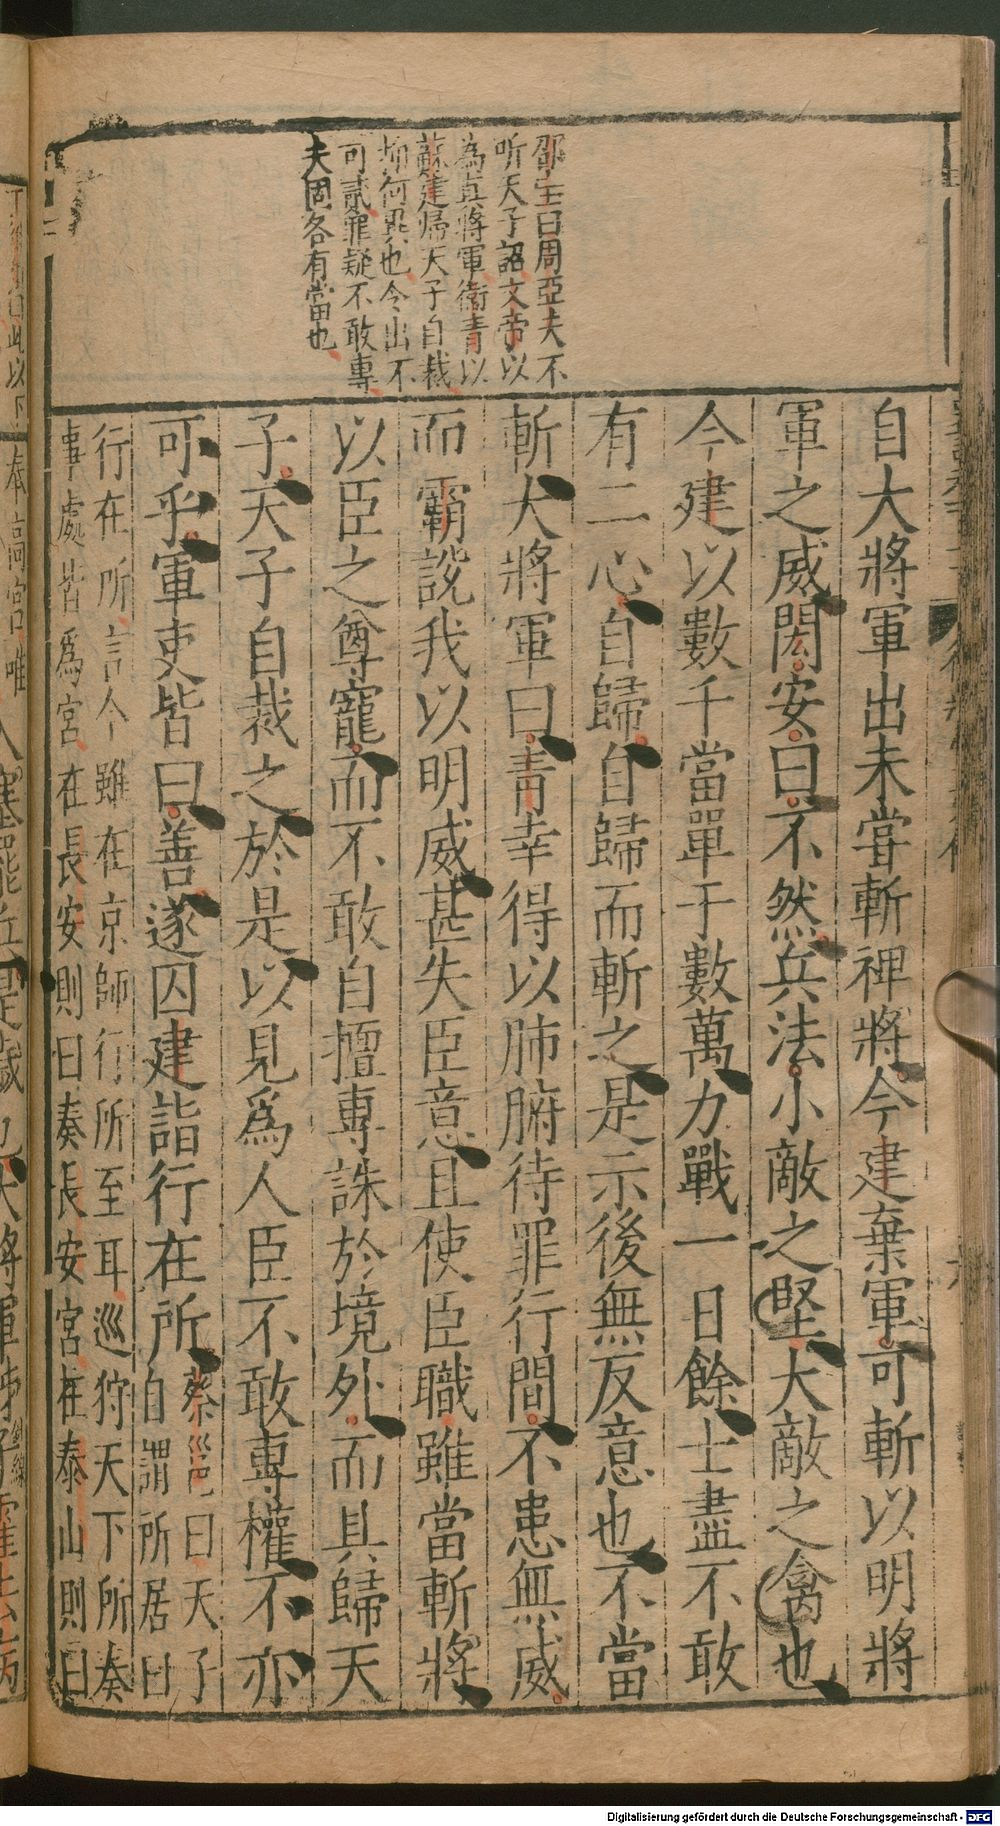 邵宝曰周亞夫不
听天子詔文帝以
為真將軍衛青以
蘇建歸天子自裁
抑何異也令出不
可貳罪疑不敢專
夫固各有當也
自大將軍出未嘗斬裨將今建棄軍可斬以明將
軍之威閎安曰不然兵法小敵之堅大敵之禽也
今建以數千當單于數萬力戰一日餘士盡不敢
有二心自歸自歸而斬之是示後無反意也不當
斬大將軍曰青幸得以肺腑待罪行間不患無威
而霸說我以明威甚失臣意且使臣職雖當斬將
以臣之尊寵而不敢自擅專誅於境外而具歸天
子天子自裁之於是以見爲人臣不敢專權不亦
可乎軍吏皆曰善遂囚建詣行在所
蔡邕曰天子
自謂所居曰
行在所言今雖在京師行所至耳巡狩天下所奏
事處皆爲宮在長安則曰奏長安宮在泰山則曰
奉高宮唯
Digitalisierung gefördert durch die Deutsche Forschungsgemeinschaft - DFG